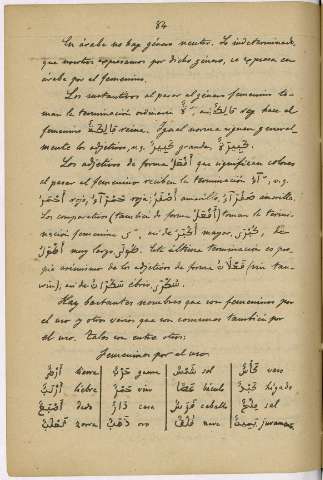 84
En árabe no hay género neutro. Lo indeterminado
que nosotros expresamos por dicho género, se expresa en
árabe por el femenino.
Los sustantivos al pasar al género femenino to-
man la terminación ordinaria ةٌ, así مَلِكٌ rey hace el
femenino مَلِكَةٌ reina. Igual norma siguen general
mente los adjetivos, v.g. كَبِيرٌ grande, كَبِيرَةٌ.
Los adjetivos de forma أَفْعَلُ que significan colores
al pasar al femenino reciben la terminación آءُ, v.g.
أَحْمَرُ rojo, حَمْرَآءُ roja; أَصْفَرُ amarillo, صَفْرَآءُ amarilla.
Los comparativos (también de forma أَفْعَلُ) toman la termi-
nación femenina ى, así de أَكْبَرُ mayor, كُبْرَى, de
أَطْوَلُ muy largo طُولَى. Esta última terminación es pro-
pia asimismo de los adjetivos de forma فَعْلَانُ (sin tan-
win), así de سَكْرَانُ ebrio, سَكْرَى.
Hay bastantes nombres que son femeninos por
el uso y otros varios que son comunes también por
el uso. Tales son entre otros:
Femeninos por el uso.
أَرْضٌ tierra حَرْبٌ guerra شَمْسٌ sol كَأْسٌ vaso
أَرْنَبٌ liebre خَمْرٌ vino عَصًا báculo كَبِدٌ hígado
أَصْبَعٌ dedo دَارٌ casa فَرَسٌ caballo مِلْحٌ sal
ثَعْلَبٌ zorra ذَهَبٌ oro فُلْكٌ nave يَمِينٌ juramento